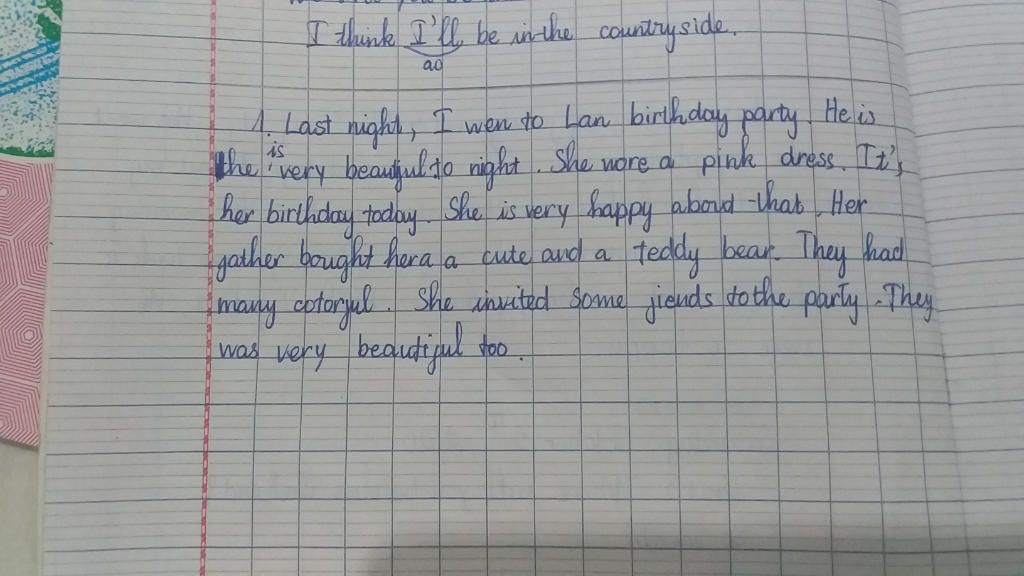 I think I'll be in the countryside.
ao
1. Last night, I wen to Lan birthday party. He is
the is very beautyful to night. She wore a pink dress. It's
her birthday today. She is very happy aboud that. Her
gather bought hera a cute and a teddy bear. They had
many cotorful. She invited some jiends to the party. They
was very beautiful too.